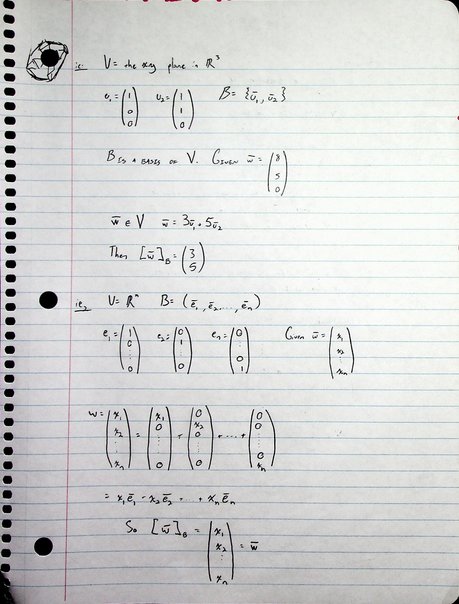 ie: V= the xy plane in ℝ³
v₁=(1 0 0) v₂=(1 1 0) B= {v̄₁, v̄₂}
B is a basis of V. Given w̄=(8 5 0)
w̄ ∈ V w̄ = 3v̄₁+5v̄₂
Then [w̄]_B=(3 5)
ie₂ V= ℝⁿ B= (ē₁, ē₂..., ēₙ)
e₁=(1 0 ⋮ 0) e₂=(0 1 ⋮ 0) eₙ=(0 ⋮ 0 1) Given w̄=(x₁ x₂ ⋮ xₙ)
w=(x₁ x₂ ⋮ xₙ)=(x₁ 0 ⋮ 0)+(0 x₂ 0 ⋮ 0)+....+(0 0 ⋮ 0 xₙ)
= x₁ē₁+x₂ē₂+..+xₙēₙ
So [w̄]_B=(x₁ x₂ ⋮ xₙ)=w̄